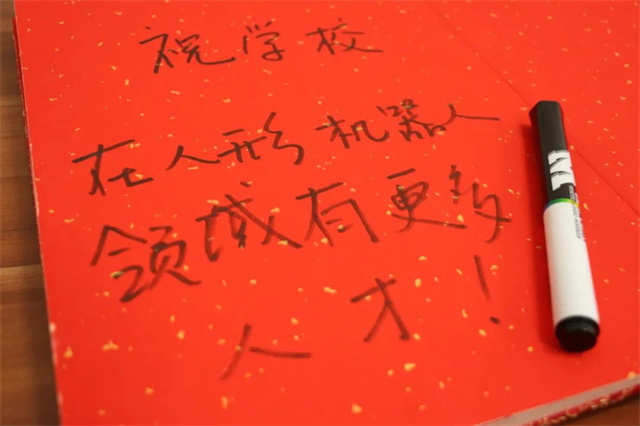 祝学校
在人形机器人
领域有更多
人才！